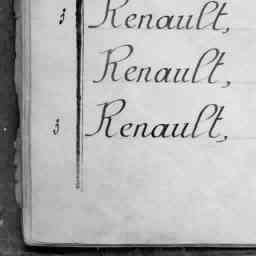 3 Renault,
Renault,
3 Renault,